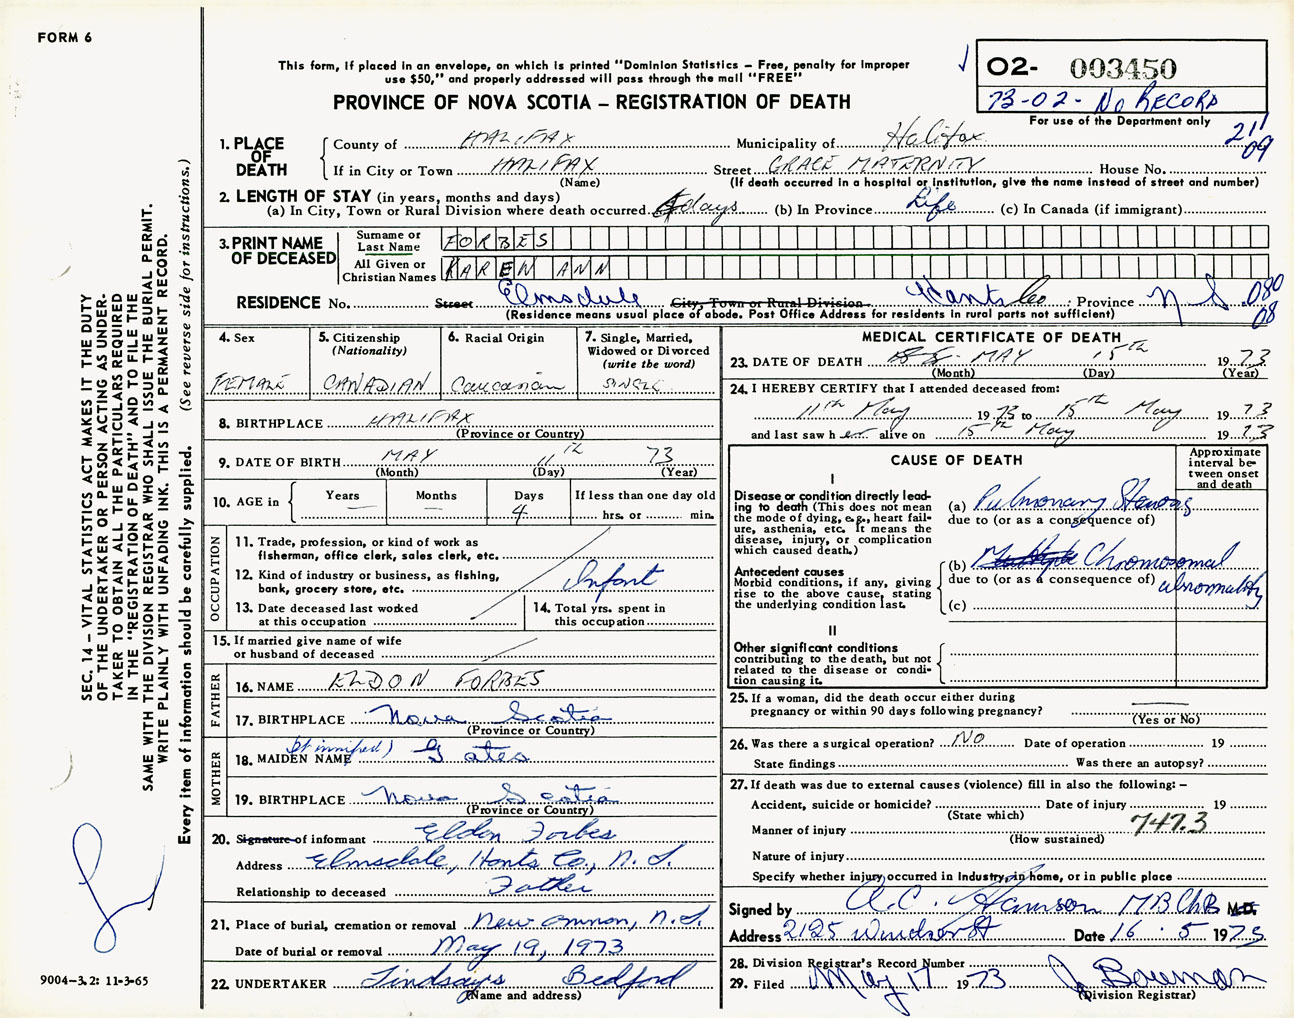 FORM 6
This form, if placed in an envelope, on which is printed "Dominion Statistics – Free, penalty for improper
use $50," and properly addressed will pass through the mail "FREE"
PROVINCE OF NOVA SCOTIA – REGISTRATION OF DEATH
02- 003450
73-02- No RECORD
For use of the Department only
211
09
1. PLACE OF DEATH
County of HALIFAX Municipality of Halifax
If in City or Town HALIFAX Street GRACE MATERNITY House No.
(Name) (If death occurred in a hospital or institution, give the name instead of street and number)
2. LENGTH OF STAY (in years, months and days)
(a) In City, Town or Rural Division where death occurred 4 days (b) In Province Life (c) In Canada (if immigrant)
3. PRINT NAME OF DECEASED
Surname or Last Name FORBES
All Given or Christian Names KAREN ANN
RESIDENCE No. Street Elmsdale City, Town or Rural Division Hants Co Province N S 080
08
(Residence means usual place of abode. Post Office Address for residents in rural parts not sufficient)
4. Sex
FEMALE
5. Citizenship
(Nationality)
CANADIAN
6. Racial Origin
Caucasian
7. Single, Married,
Widowed or Divorced
(write the word)
SINGLE
8. BIRTHPLACE HALIFAX
(Province or Country)
9. DATE OF BIRTH MAY 11th 73
(Month) (Day) (Year)
10. AGE in
Years Months Days If less than one day old
— — 4 hrs. or min.
OCCUPATION
11. Trade, profession, or kind of work as
fisherman, office clerk, sales clerk, etc.
12. Kind of industry or business, as fishing,
bank, grocery store, etc. Infant
13. Date deceased last worked
at this occupation
14. Total yrs. spent in
this occupation
15. If married give name of wife
or husband of deceased
FATHER
16. NAME ELDON FORBES
17. BIRTHPLACE Nova Scotia
(Province or Country)
MOTHER
18. MAIDEN NAME Gates
19. BIRTHPLACE Nova Scotia
(Province or Country)
20. Signature of informant Eldon Forbes
Address Elmsdale, Hants Co., N. S.
Relationship to deceased Father
21. Place of burial, cremation or removal New Annan, N.S.
Date of burial or removal May 19, 1973
22. UNDERTAKER Lindsays Bedford
(Name and address)
MEDICAL CERTIFICATE OF DEATH
23. DATE OF DEATH MAY 15th 1973
(Month) (Day) (Year)
24. I HEREBY CERTIFY that I attended deceased from:
11th May 1973 to 15th May 1973
and last saw her alive on 15th May 1973
CAUSE OF DEATH
Approximate
interval be-
tween onset
and death
I
Disease or condition directly lead-
ing to death (This does not mean
the mode of dying, e.g., heart fail-
ure, asthenia, etc. It means the
disease, injury, or complication
which caused death.)
(a) Pulmonary Stenosis
due to (or as a consequence of)
Antecedent causes
Morbid conditions, if any, giving
rise to the above cause, stating
the underlying condition last.
(b) Multiple Chromosomal
due to (or as a consequence of) abnormality
(c)
II
Other significant conditions
contributing to the death, but not
related to the disease or condi-
tion causing it.
25. If a woman, did the death occur either during
pregnancy or within 90 days following pregnancy?
(Yes or No)
26. Was there a surgical operation? NO Date of operation 19
State findings Was there an autopsy?
27. If death was due to external causes (violence) fill in also the following: –
Accident, suicide or homicide? Date of injury 19
(State which)
Manner of injury 747.3
(How sustained)
Nature of injury
Specify whether injury occurred in Industry, in home, or in public place
Signed by A.C. M B Ch B M.D.
Address 2125 Windsor St Date 16 . 5 1973
28. Division Registrar's Record Number
29. Filed May 17 1973 J Bowman
(Division Registrar)
SEC. 14 – VITAL STATISTICS ACT MAKES IT THE DUTY
OF THE UNDERTAKER OR PERSON ACTING AS UNDER-
TAKER TO OBTAIN ALL THE PARTICULARS REQUIRED
IN THE "REGISTRATION OF DEATH" AND TO FILE THE
SAME WITH THE DIVISION REGISTRAR WHO SHALL ISSUE THE BURIAL PERMIT.
WRITE PLAINLY WITH UNFADING INK. THIS IS A PERMANENT RECORD.
Every item of information should be carefully supplied. (See reverse side for instructions.)
9004-3.2: 11-3-65